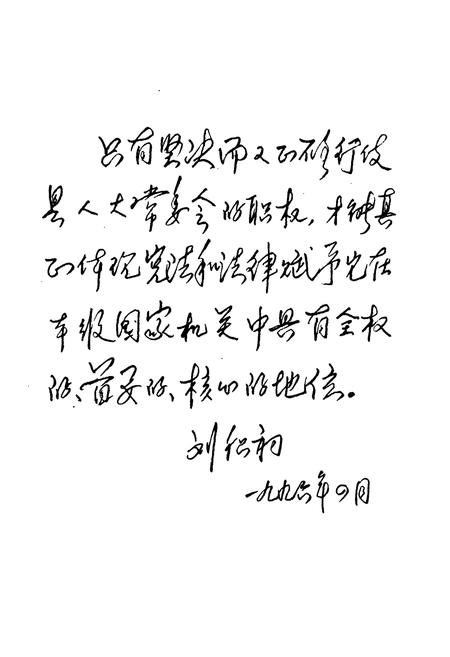 只有坚决而又正确行使
县人大常委会的职权，才能真
正体现宪法和法律赋予它在
本级国家机关中具有全权
的、首要的、核心的地位。
刘积初
一九九六年四月